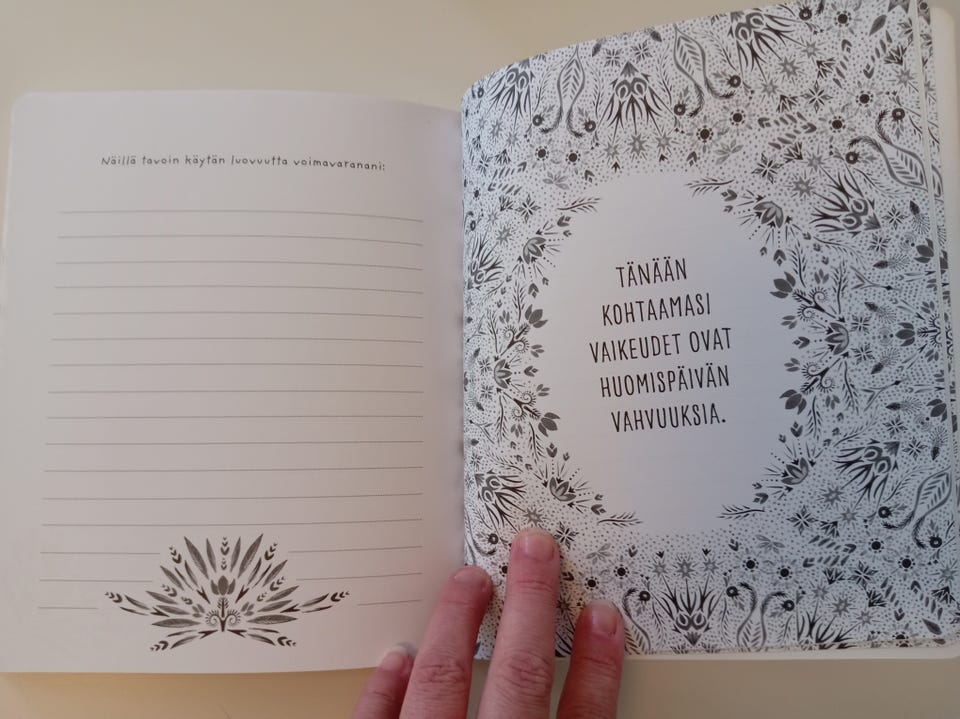 Näillä tavoin käytän luovuutta voimavaranani:
TÄNÄÄN
KOHTAAMASI
VAIKEUDET OVAT
HUOMISPÄIVÄN
VAHVUUKSIA.